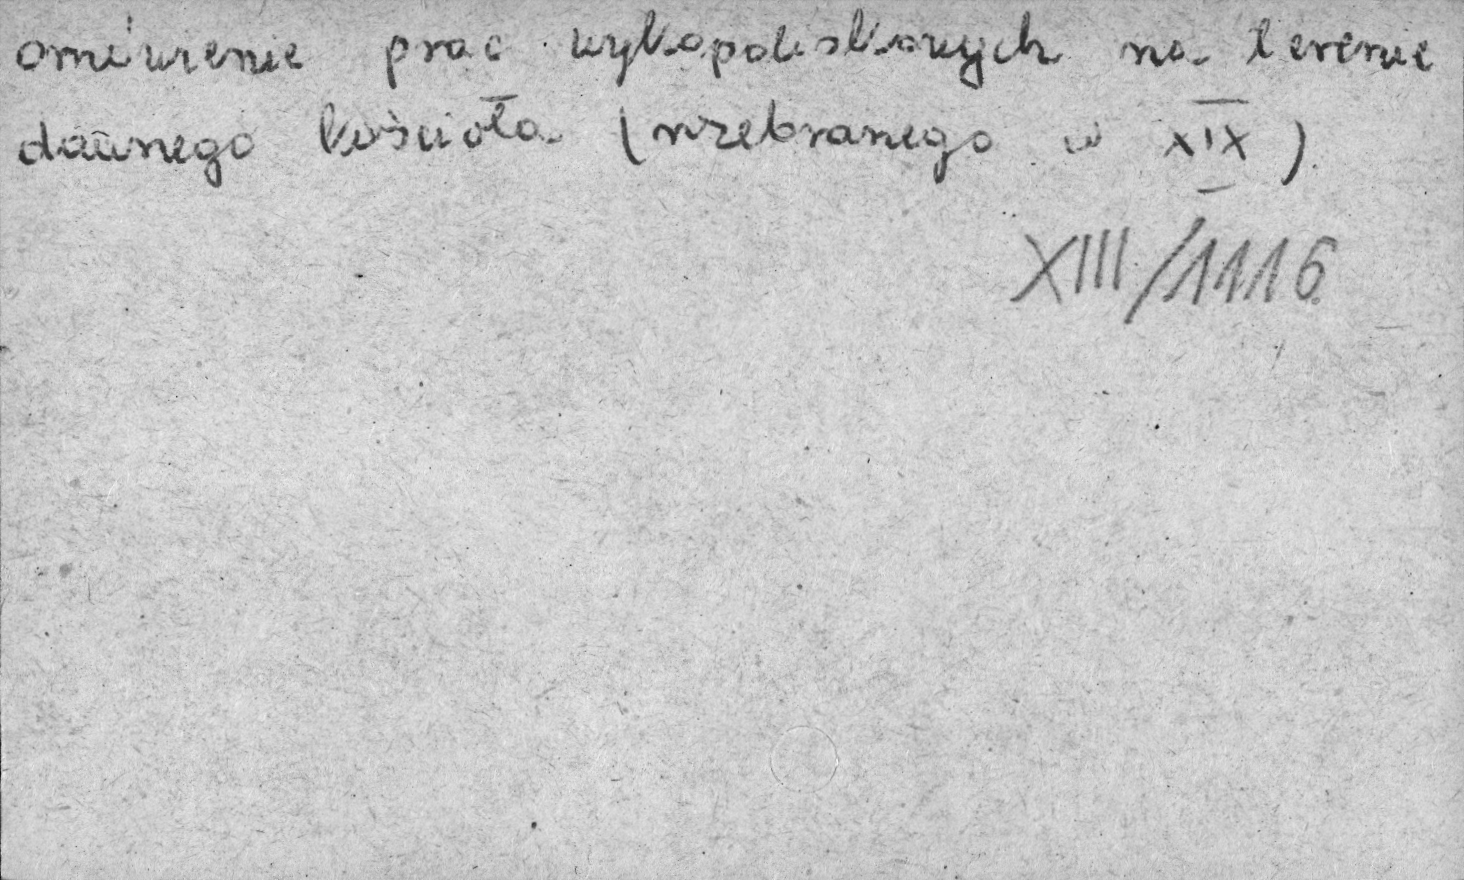 omówienie prac wykopaliskowych na terenie
dawnego kościoła (rozebranego w XIX)
XIII/1116